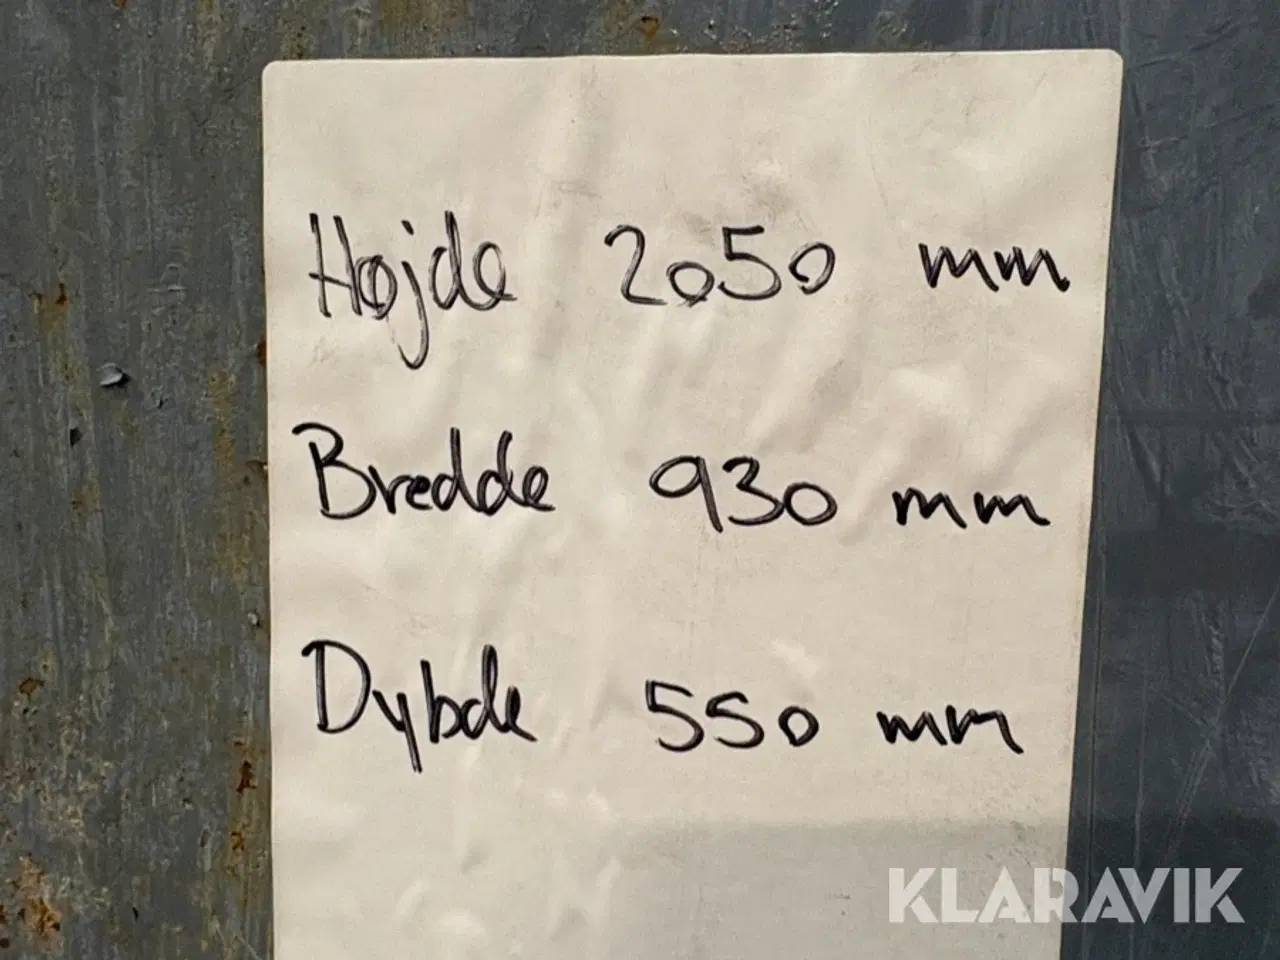 Højde 2050 mm
Bredde 930 mm
Dybde 550 mm
KLARAVIK